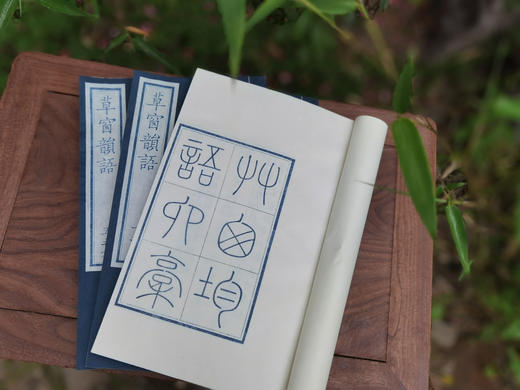 草窗韻語
草窗韻語
艸囪均
語六稾